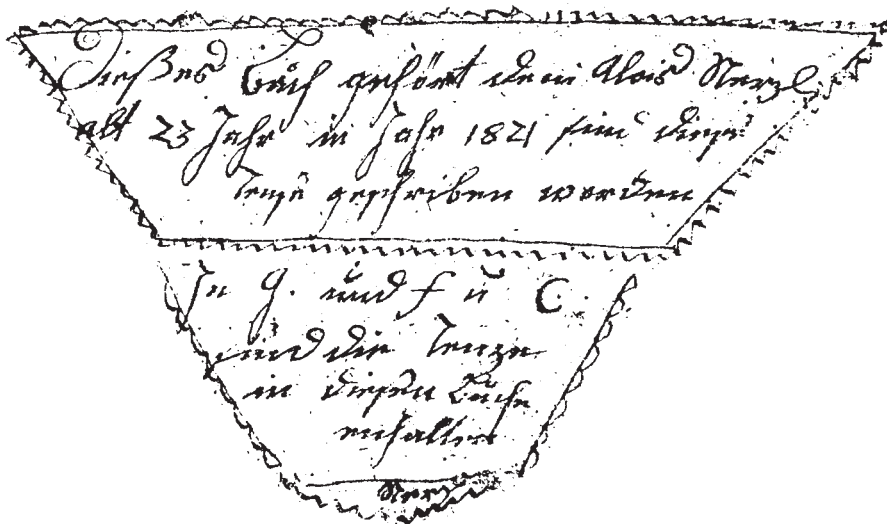 Dießes Buch gehört dem Alois
alt 23 Jahr in Jahr 1821 sind diese
Tenze geschriben worden
In G. und f u C.
sind die Tenze
in diesen Buche
enhalten